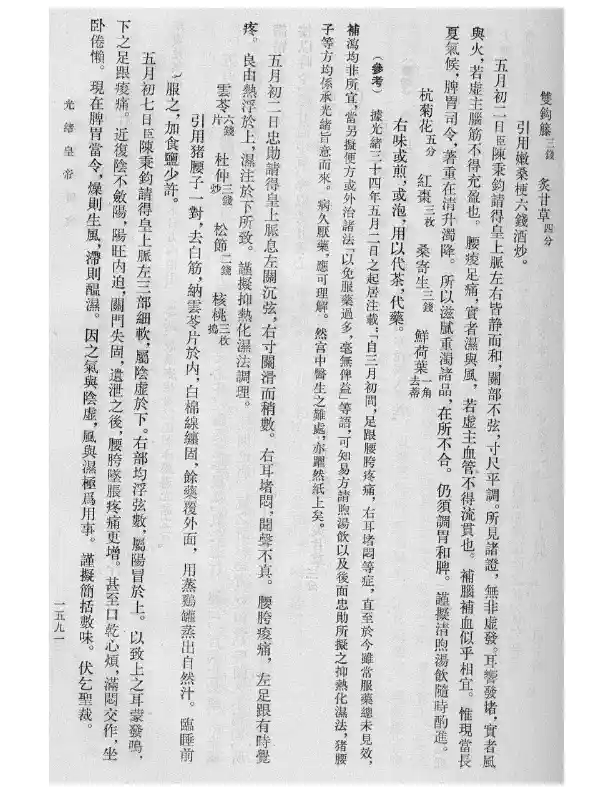 雙鈎籐三錢　炙甘草四分
引用嫩桑梗六錢酒炒。
五月初二日臣陳秉鈞請得皇上脈左右皆静而和，關部不弦，寸尺平調。所見諸證，無非虛發。耳響發堵，實者風
與火，若虛主腦筋不得充盈也。腰痠足痛，實者濕與風，若虛主血管不得流貫也。補腦補血似乎相宜。惟現當長
夏氣候，脾胃司令，著重在清升濁降。所以滋膩重濁諸品，在所不合。仍須調胃和脾。謹擬清煦湯飲隨時酌進。
杭菊花五分　紅棗三枚　桑寄生三錢　鮮荷葉一角去蒂
右味或煎，或泡，用以代茶，代藥。
（參考）據光緒三十四年五月二日之起居注載：「自三月初間，足跟腰胯疼痛，右耳堵悶等症，直至於今雖當服藥總未見效，
補瀉均非所宜，當另擬便方或外治諸法，以免服藥過多，毫無俾益」等語，可知易方請煦湯飲以及後面忠助所擬之抑熱化濕法，豬腰
子等方均係承光緒旨意而來。病久厭藥，應可理解。然宮中醫生之難處，亦躍然紙上矣。
五月初二日忠助請得皇上脈息左關沉弦，右寸關滑而稍數。右耳堵悶，聞聲不真。腰胯痠痛，左足跟有時覺
疼。良由熱浮於上，濕注於下所致。謹擬抑熱化濕法調理。
雲苓六錢片　杜仲三錢炒　松節二錢　核桃三枚搗
引用豬腰子一對，去白筋，納雲苓片於内，白棉線纏固，餘藥覆外面，用蒸鷄罐蒸出自然汁。臨睡前
服之，加食鹽少許。
五月初七日臣陳秉鈞請得皇上脈左三部細軟，屬陰虛於下。右部均浮弦數，屬陽冒於上。以致上之耳蒙發鳴，
下之足跟痠痛。近復陰不斂陽，陽旺内迫，關門失固，遺泄之後，腰胯墜脹疼痛更增。甚至口乾心煩，滿悶交作，坐
卧倦懶。現在脾胃當令，燥則生風，滯則醞濕。因之氣與陰虛，風與濕極爲用事。謹擬簡括數味。伏乞聖裁。
光緒皇帝
一五九一